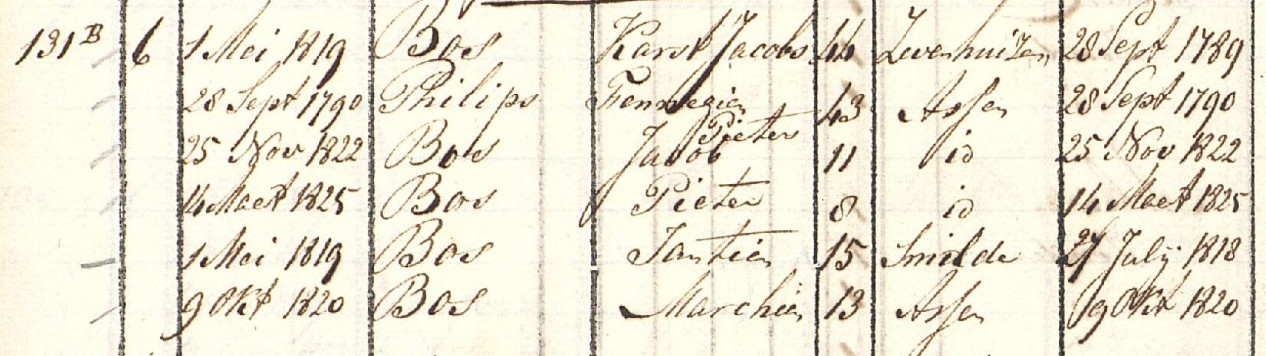 131 B 6 1 Mei 1819 Bos Karst Jacobs 44 Zevenhuizen 28 Sept 1789
28 Sept 1790 Philips Femmegien 43 Assen 28 Sept 1790
25 Nov 1822 Bos Jacob Pieter 11 id 25 Nov 1822
14 Maert 1825 Bos Pieter 8 id 14 Maert 1825
1 Mei 1819 Bos Jantien 15 Smilde 27 July 1818
9 Okt 1820 Bos Marchien 13 Assen 9 Okt 1820